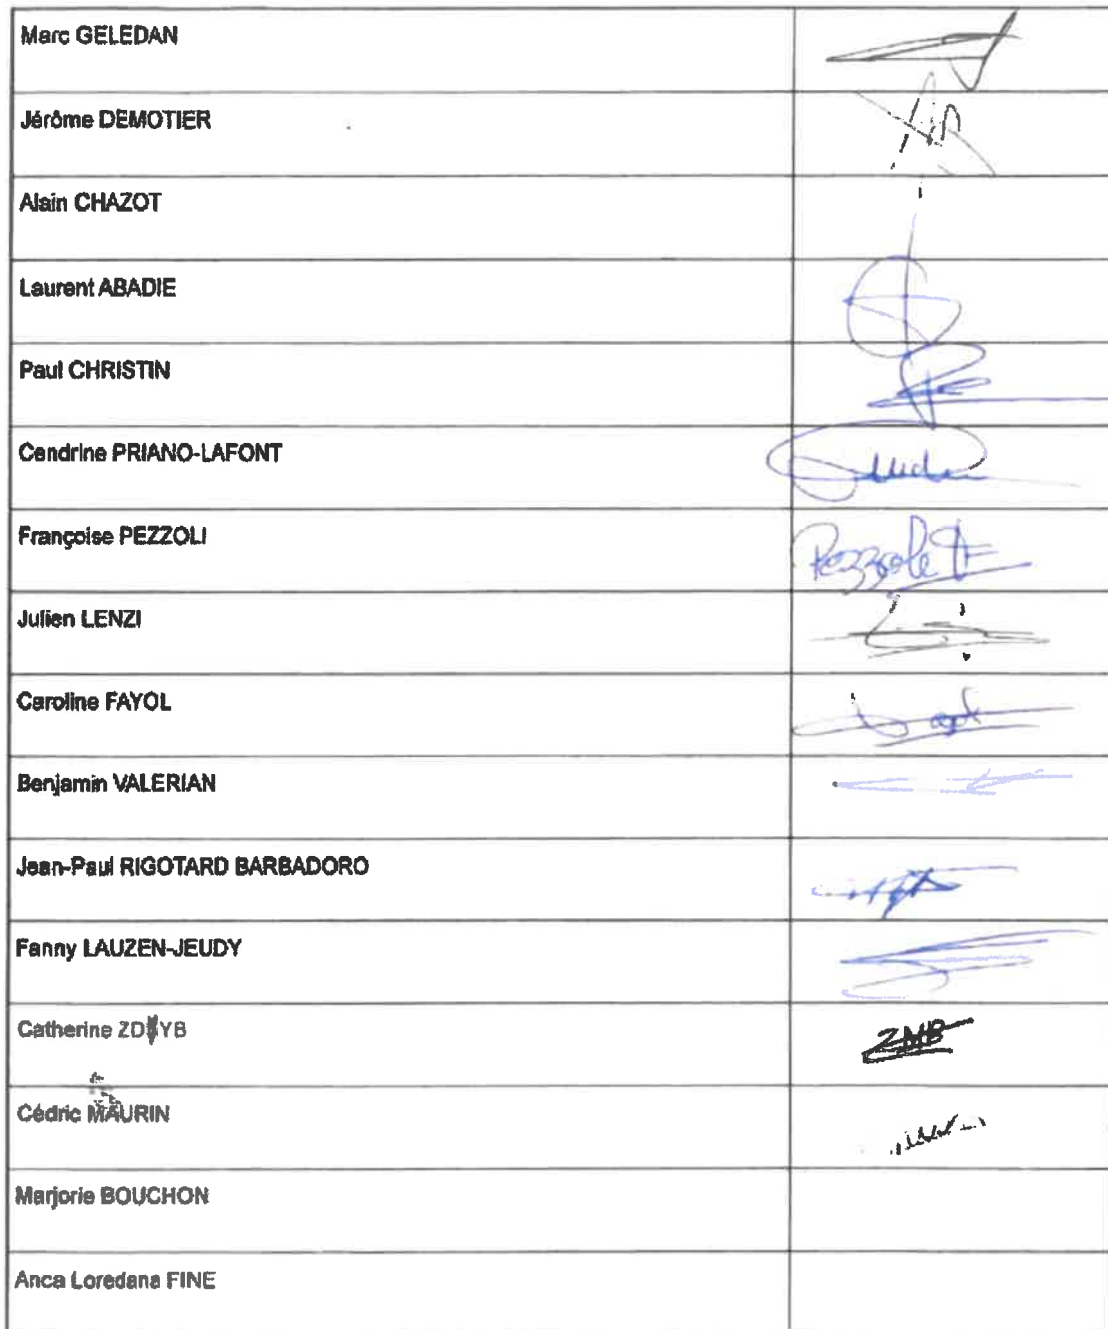 Marc GELEDAN
Jérôme DEMOTIER
Alain CHAZOT
Laurent ABADIE
Paul CHRISTIN
Cendrine PRIANO-LAFONT
Françoise PEZZOLI
Julien LENZI
Caroline FAYOL
Benjamin VALERIAN
Jean-Paul RIGOTARD BARBADORO
Fanny LAUZEN-JEUDY
Catherine
ZMB
Cédric MAURIN
Marjorie BOUCHON
Anca Loredana FINE